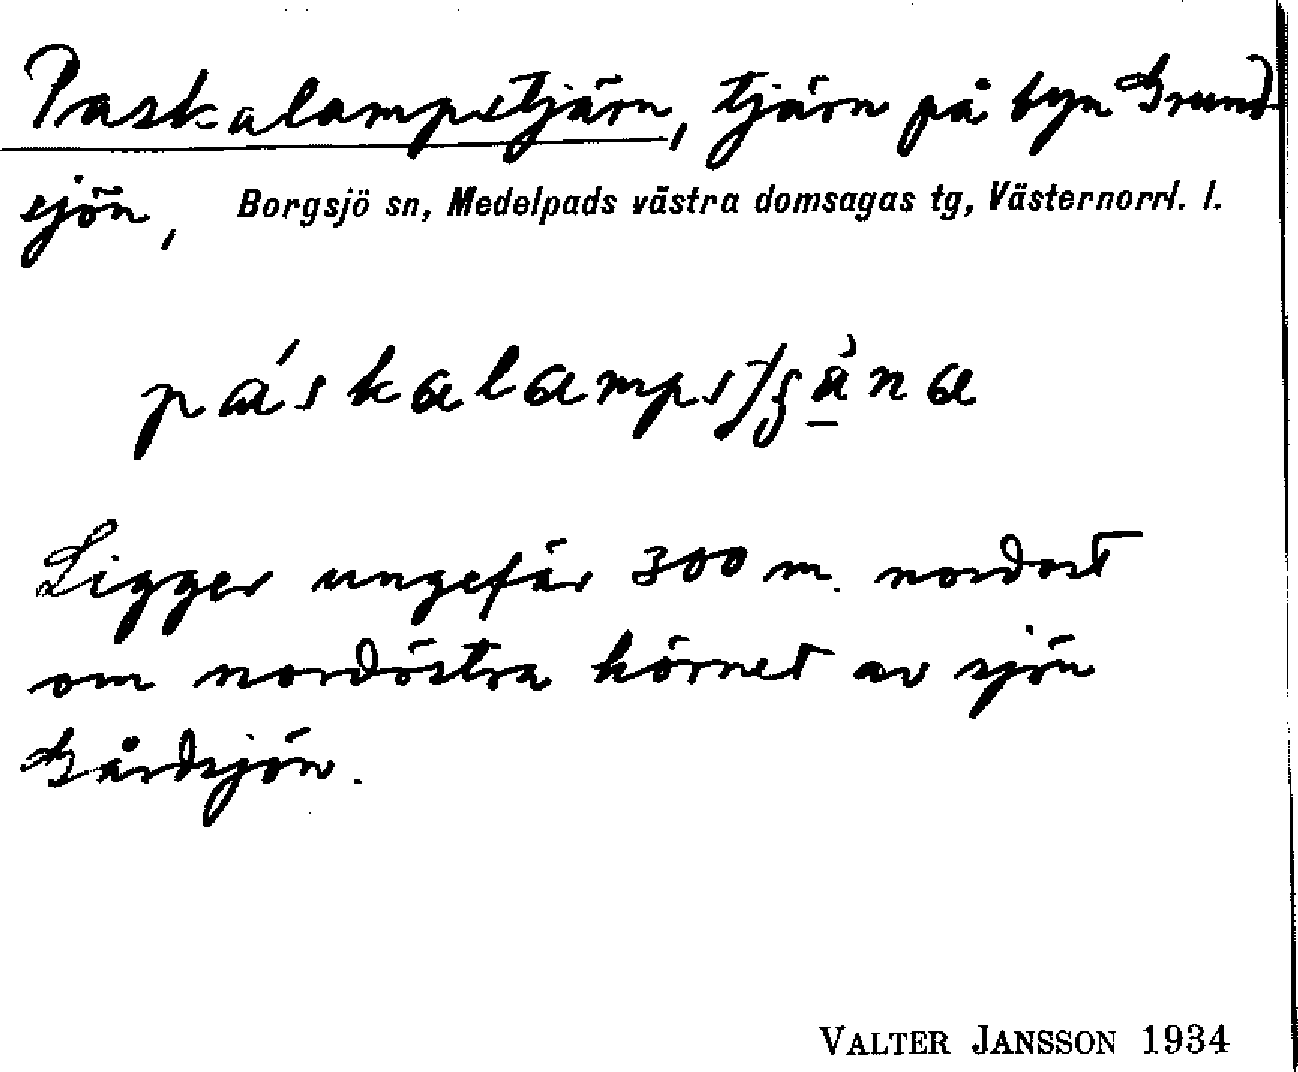 Paskalampstjärn, tjärn på byn Grund-
sjön, Borgsjö sn, Medelpads västra domsagas tg, Västernorrl. l.
páskalampstʃä̀na
Ligger ungefär 300 m. nordost
om nordöstra hörnet av sjön
Gårdsjön.
VALTER JANSSON 1934